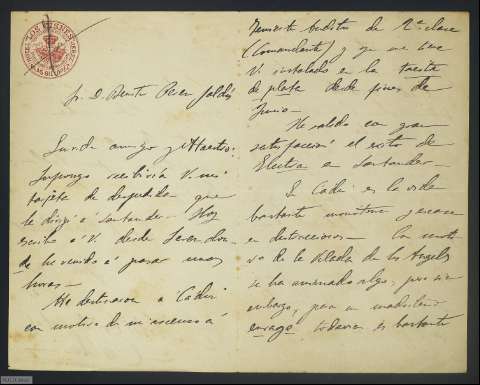 LOS CISNES
JEREZ
Sr. D. Benito Perez Galdós
Querido amigo y Maestro:
Supongo recibiría V. mi
tarjeta de despedida que
le dirigí á Santander. Hoy
escribo á V. desde Jerez don-
de he venido á pasar unas
horas -
Me destinaron á Cadiz
con motivo de mi ascenso á
Teniente Auditor de 2ª clase
(Comandante) y que me tiene
V. instalado en la tacita
de plata desde fines de
Junio -
He sabido con gran
satisfacción el éxito de
Electra en Santander -
En Cadiz es la vida
bastante monótona y escasa
en distracciones - Con moti-
vo de la Velada de los Angeles
se ha animado algo, pero sin
embargo, para un madrileño
todavía es bastante